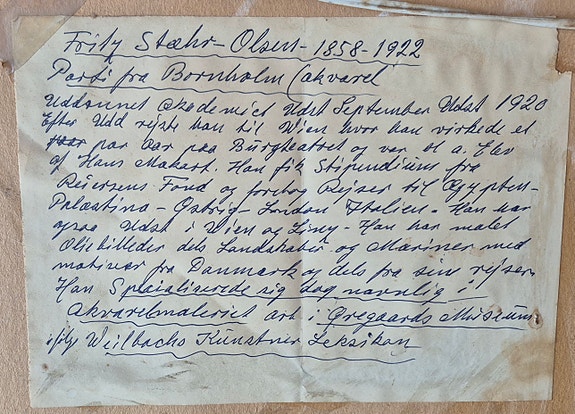 Fritz Stæhr-Olsen - 1858-1922
Parti fra Bornholm (akvarel
Uddannet Akademiet Udst September Udst 1920
Efter Udd rejste han til Wien hvor han virkede et
par Aar paa Burgteatret og var bl a. Elev
af Hans Makart. Han fik Stipendiens fra
Reiersens Fond og foretog Rejser til Ægypten-
Palæstina - Østrig - London Italien - Han har
ogsaa Udst i Wien og - Han har malet
Oliebilleder dels Landskaber og Mariner med
motiver fra Danmark og dels fra sine rejser
Han Specialiserede sig dog navnlig i
akvarelmaleriet arb i Øregaards Museum
ifølg Weilbachs Kunstner Leksikon